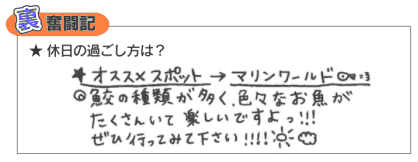 裏奮闘記
★ 休日の過ごし方は？
★ オススメスポット → マリンワールド
◎鮫の種類が多く、色々なお魚が
たくさんいて 楽しいですよっ!!!
ぜひ行ってみて下さい!!!!